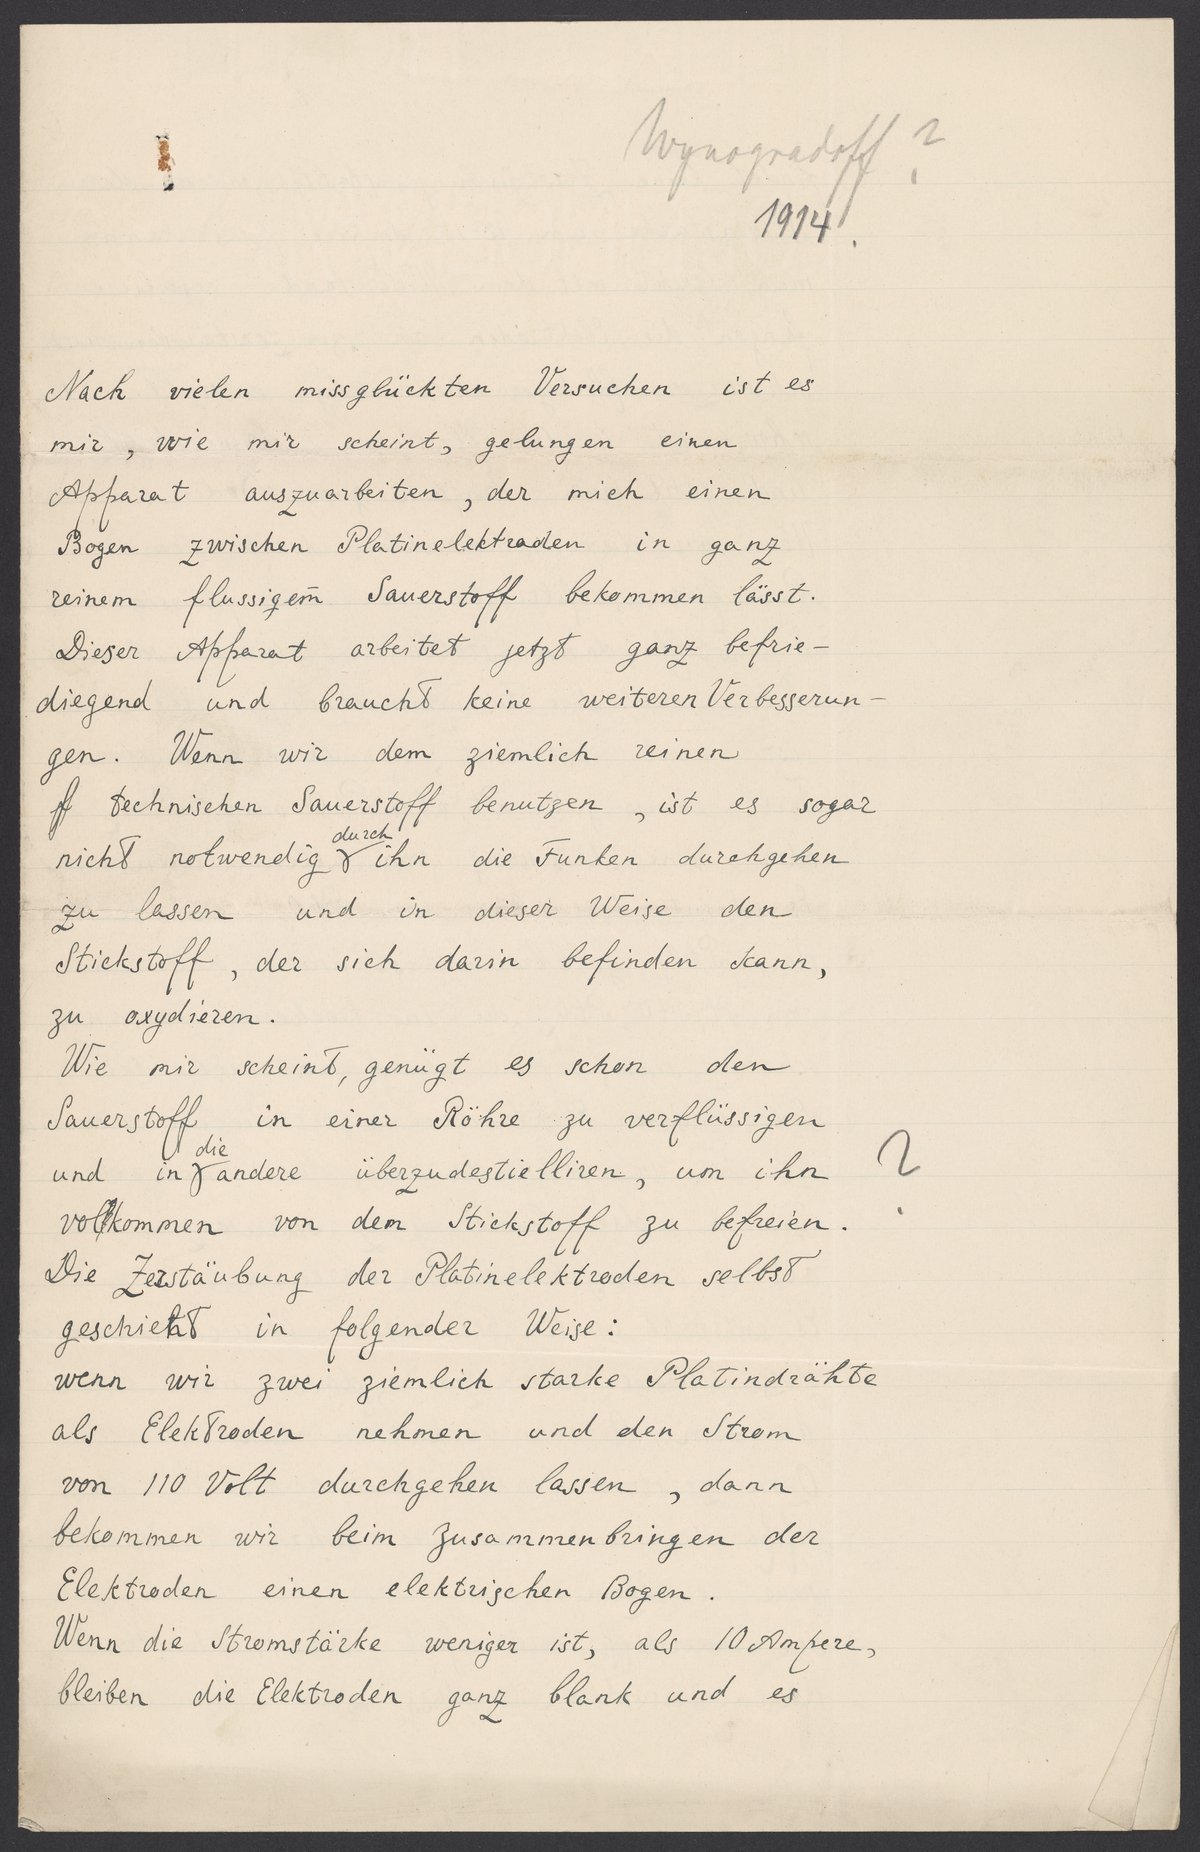 Wynogradoff ?
1914.
Nach vielen missglückten Versuchen ist es
mir, wie mir scheint, gelungen einen
Apparat auszuarbeiten, der mich einen
Bogen zwischen Platinelektraden in ganz
reinem flussigem̅ Sauerstoff bekommen lässt.
Dieser Apparat arbeitet jetzt ganz befrie-
diegend und braucht keine weiteren Verbesserun-
gen. Wenn wir dem ziemlich reinen
technischen Sauerstoff benutzen, ist es sogar
durch
nicht notwendig ihn die Funken durchgehen
zu lassen und in dieser Weise den
Stickstoff, der sich darin befinden kann,
zu oxydieren.
Wie mir scheint, genügt es schon den
Sauerstoff in einer Röhre zu verflüssigen
die
und in andere überzudestielliren, um ihn ?
vollkommen von dem Stickstoff zu befreien.
Die Zerstäubung der Platinelektroden selbst
geschieht in folgender Weise:
wenn wir zwei ziemlich starke Platindrähte
als Elektroden nehmen und den Strom
von 110 Volt durchgehen lassen, dann
bekommen wir beim Zusammenbringen der
Elektroden einen elektrischen Bogen.
Wenn die Stromstärke weniger ist, als 10 Ampere,
bleiben die Elektroden ganz blank und es